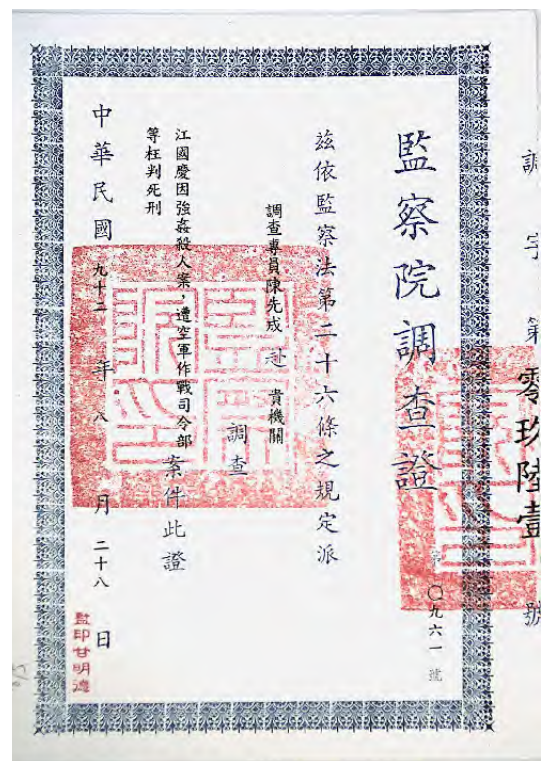 調字第零玖陸壹號
監察院調查證
字〇九六一號
茲依監察法第二十六條之規定派
調查專員陳先成赴貴機關
調查
江國慶因強姦殺人案，遭空軍作戰司令部
等枉判死刑
案件此證
中華民國九十二年八月二十八日
監察院印
監印甘明